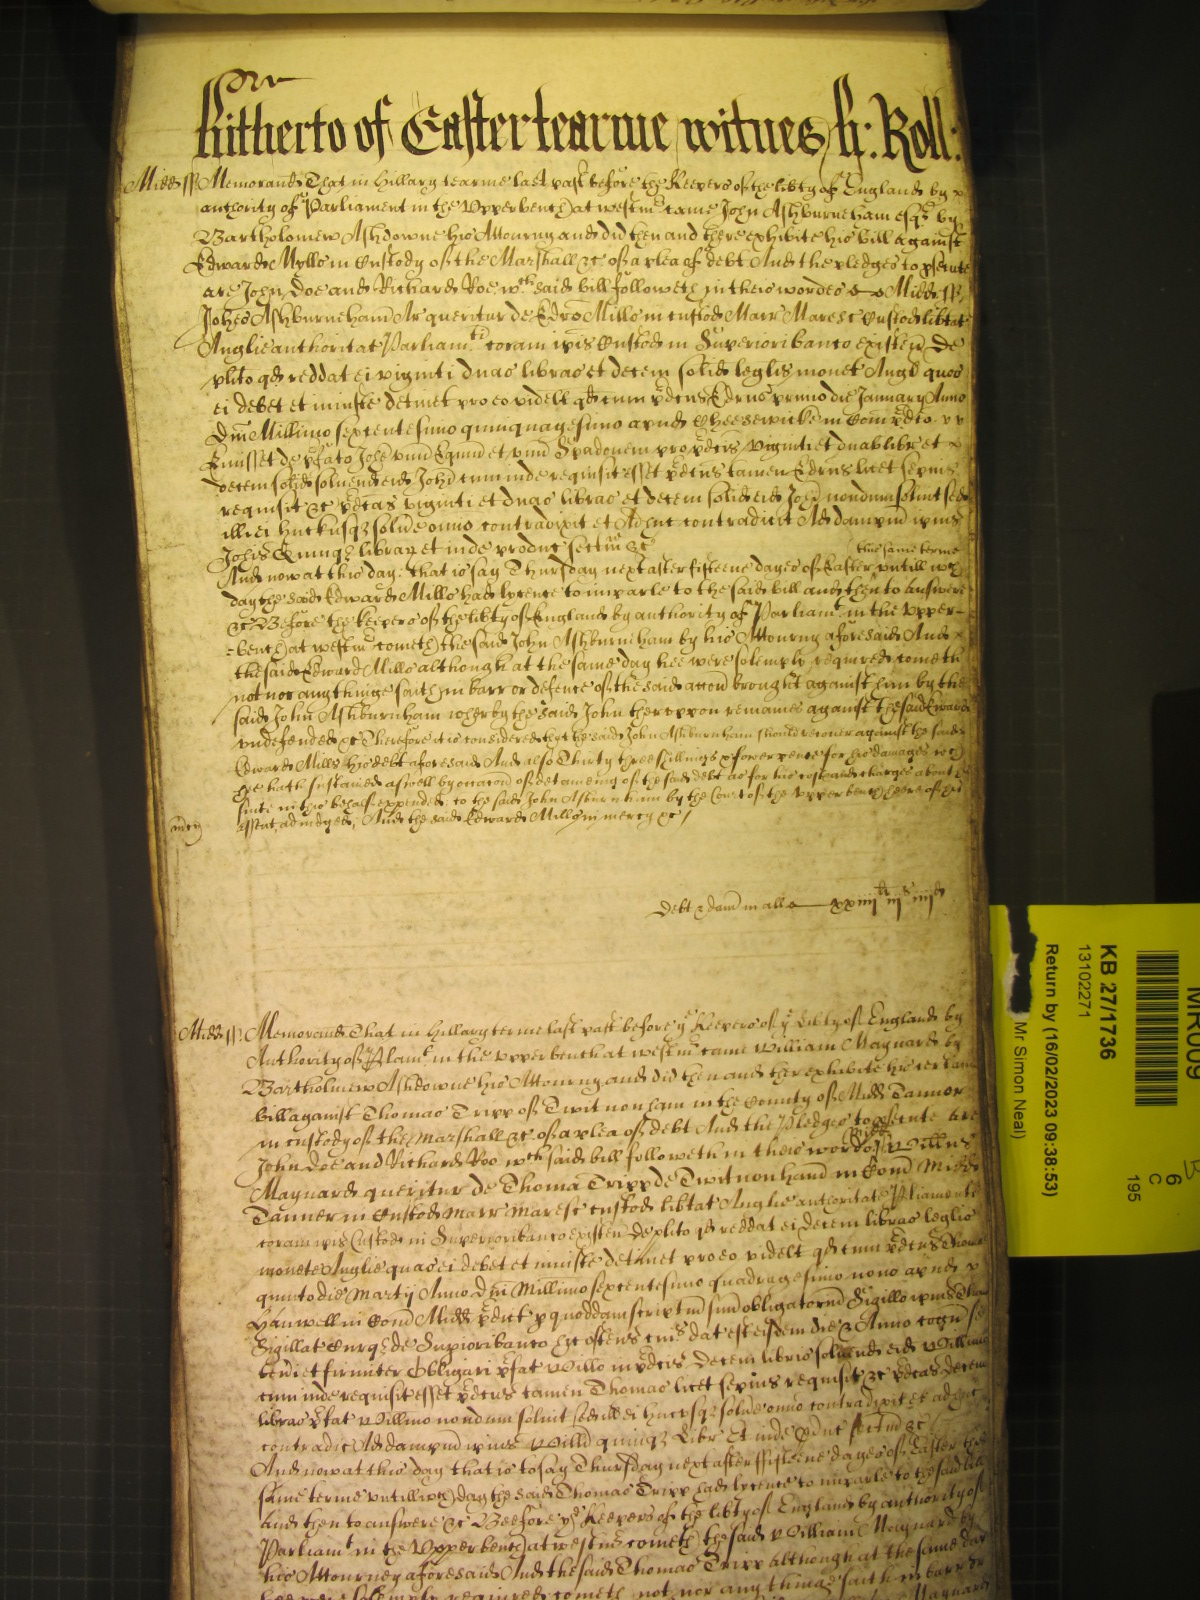 hitherto of Easter tearme witnes h: Roll:
Midds ss Memorand That in Hillary tearme last past before the Keepers of the libty of England by
authority of Parliament in the Upper bench at westm came John Ashburneham esqr by
Bartholomew Ashdowne his Attourny and did then and there exhibite his bill against
Edward Mills in Custody of the Marshall &c of a plea of debt And the pledges to psecute
are John Doe and Richard Roe wch said bill followeth in theis wordes Midds ss
Johes Ashburneham Ar queritur de Edro Mills in custod Marr Maresc Custod libtat
Anglie authoritat Parliamti coram ipis Custod in Superiori banco existen De
plito qd reddat ei viginti duas libras et decem solid leglis monet Angl quos
ei debet et iniuste detinet pro eo videlt qd cum pdcus Edrus primo die January Anno
Dni Millimo sexcentesimo quinquagesimo apud Cheesewicke in Com pdco
Emisset de pfato Johe unu Equu et unu Spadonem pro pdcis viginti et duabus libr et
decem solid solvend eid Johi cum inde requisit esset pdcus tamen Edrus licet sepius
requisit &c pdcas viginti et duas libras et decem solid eid Johi nondum solvit sed
ill ei hucusq solve omno contradixit et Adhuc contradicit Ad dampnu ipius
Johis Quinq librar et inde produc sectam &c
And now at this day that is to say Thursday next after fifteene dayes of Easter this same terme untill wch
day the said Edward Mills had lycence to imparle to the said bill and then to answere
&c Before the keepers of the libty of England by authority of Parliamt in the Upper
bench at westm cometh the said John Ashburneham by his Attourny aforesaid And
the said Edward Mills although at the same day hee were solemply required cometh
not nor any thinge saith in barr or defence of the said accon brought against him by the
said John Ashburnham wherby the said John therupon remaines against the said Edward
undefended &c Therefore it is considered that the said John Ashburnham should recover against the said
Edward Mills his debt aforesaid And also Thirty three shillings & fower pence for his damages wch
hee hath sustained aswell by occacon of detaineing of the said debt as for his costs and charges about his
suite in this behalfe expended to the said John Ashburnham by the Court of the Upper bench heere of his
assent adiudged And the said Edward Mills in mercy &c
mcy
Debt & dam in all xxiiijli iijs iiijd
Midds ss Memorand That in Hillary terme last past before ye Keepers of ye libty of England by
Authority of Parliamt in the upper bench at westm came William Maynard by
Bartholmew Ashdowne his Attourny and did then and ther exhibite his certaine
bill against Thomas Tripp of Twitnonham in the County of Midd Tannor
in custody of the Marshall &c of a plea of debt And the Pledges to psecute are
John Doe and Richard Roo wch said bill followeth in theis wordes Midd ss Willus
Maynard queritur de Thoma Tripp de Twitnonham in Com Midds
Tanner in Custod Marr Maresc custod libtat Anglie authoritate Pliamenti
coram ipis Custod in Superiori banco existen De plito qd reddat ei decem libras leglis
monete Anglie quas ei debet et iniuste detinet pro eo videlt qd cum pdcus Thomas
quinto die Martij Anno Dni Millimo sexcentesimo quadragesimo nono apud
Hanwell in Com Midd pdict p quoddam scriptu suu obligatoriu Sigillo ipius Thome
Sigillat Curq de Supiori banco hic ostens cuius dat est eisdem die & Anno cogn se
teneri et firmiter Obligari pfat Willo in pdcis Decem libris solvend eid Willimo
cum inde requisit esset pdcus tamen Thomas licet sepius requisit &c pdcas decem
libras pfat Willimo nondum solvit sed ill ei hucusq solve omno contradixit et adhuc
contradic Ad dampnu ipius Willi quinq Libr Et inde pduc sectam &c
And now at this day that is to say Thursday next after fifteene dayes of Easter this
same terme untill wch day the said Thomas Tripp had lycence to imparle to the said bill
and then to answere &c Beefore ye Keepers of the libty of England by authority of
Parliamt in the Upper bench at westm cometh the said William Maynard by
his Attourney aforesaid And the said Thomas Tripp although at the same day
hee were solemply required cometh not nor any thinge saith in barr or
Maynard
MR009
KB 27/1736
13102271
Return by (16/02/2023 09:38:53)
Mr Simon Neal)
6
C
195